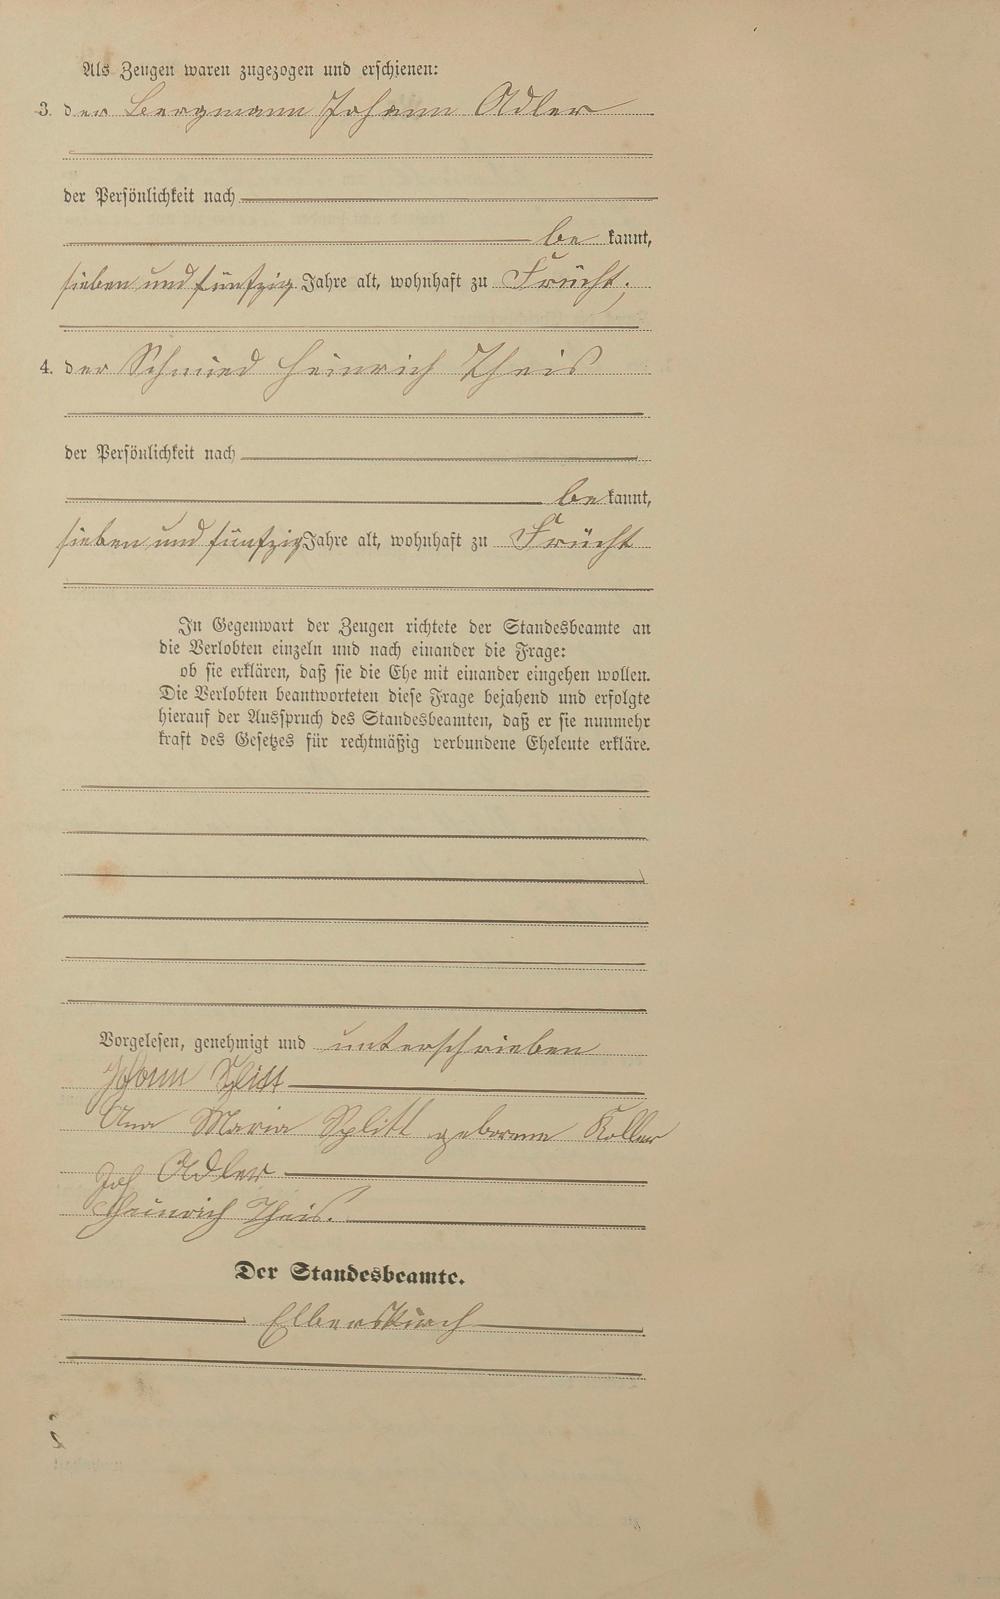 Als Zeugen waren zugezogen und erschienen:
3. der Bergmann Johann Adler
der Persönlichkeit nach
be kannt,
sieben und fünfzig Jahre alt, wohnhaft zu Frücht;
4. der Schmied Heinrich Theis
der Persönlichkeit nach
be kannt,
sieben und fünfzig Jahre alt, wohnhaft zu Frücht
In Gegenwart der Zeugen richtete der Standesbeamte an
die Verlobten einzeln und nach einander die Frage:
ob sie erklären, daß sie die Ehe mit einander eingehen wollen.
Die Verlobten beantworteten diese Frage bejahend und erfolgte
hierauf der Ausspruch des Standesbeamten, daß er sie nunmehr
kraft des Gesetzes für rechtmäßig verbundene Eheleute erkläre.
Vorgelesen, genehmigt und unterschrieben
Johann Splitt
Ana Maria Splitt geborene Koller
Joh Adler
Heinrich Theis.
Der Standesbeamte.
Elberskirch